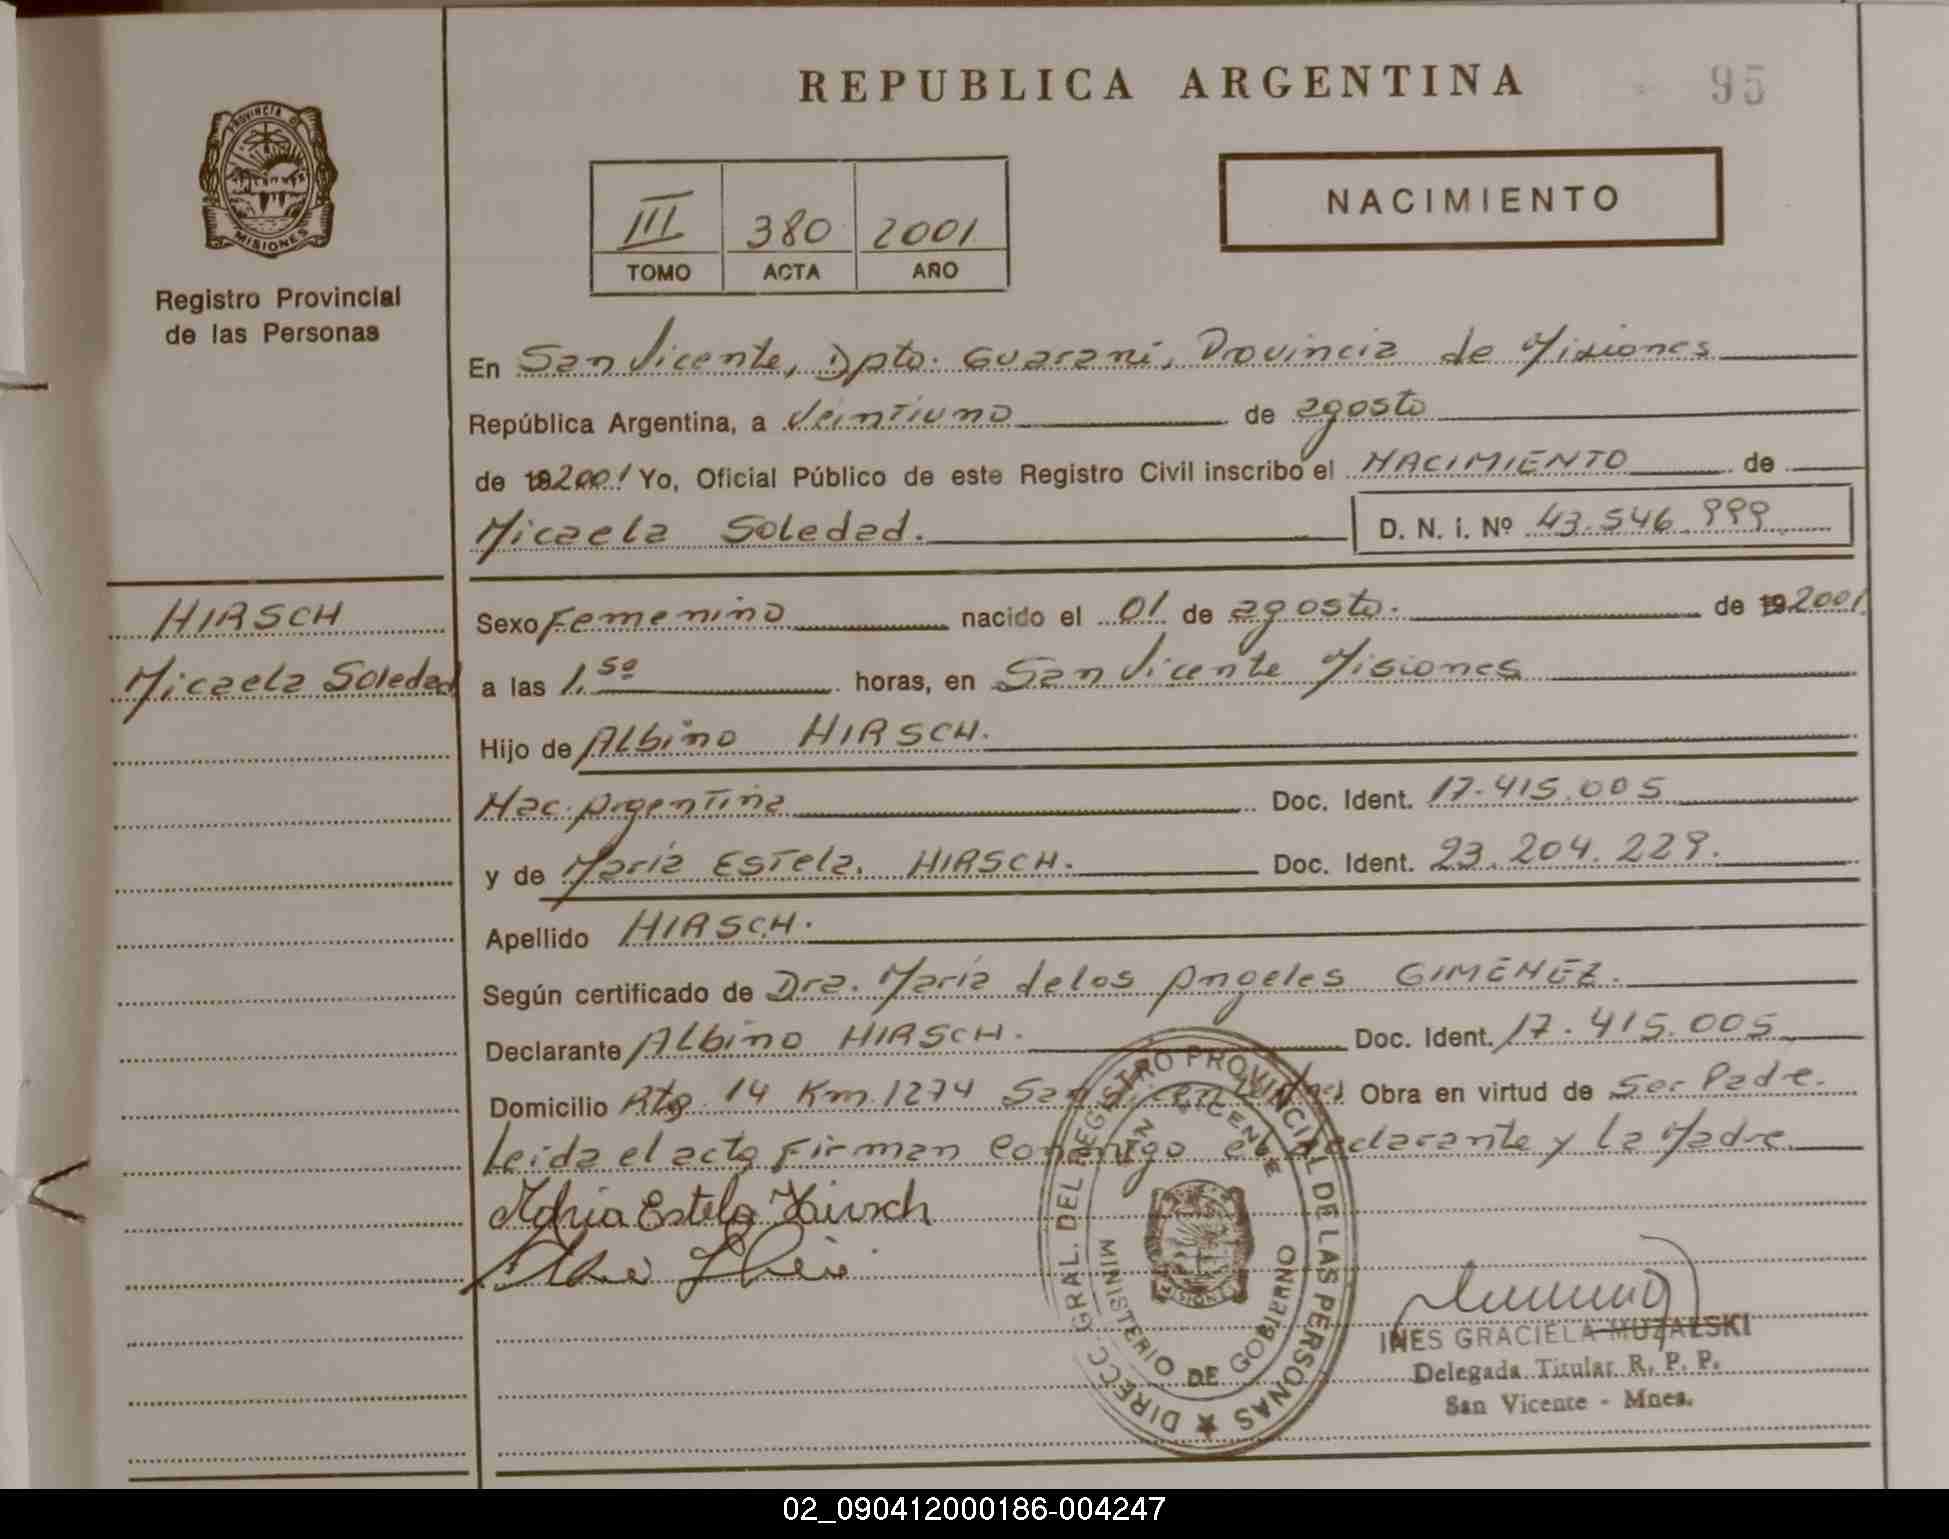 REPUBLICA ARGENTINA
95
PROVINCIA DE
MISIONES
Registro Provincial
de las Personas
III 380 2001
TOMO ACTA AÑO
NACIMIENTO
En San Vicente, Dpto. Guaraní, Provincia de Misiones
República Argentina, a Veintiuno de agosto
de 2001 Yo, Oficial Público de este Registro Civil inscribo el NACIMIENTO de
Micaela Soledad. D. N. I. Nº 43.546.999
HIRSCH
Micaela Soledad
Sexo Femenino nacido el 01 de agosto. de 2001
a las 1.50 horas, en San Vicente Misiones
Hijo de Albino HIRSCH.
Nac. Argentina Doc. Ident. 17.415.005
y de María Estela. HIRSCH. Doc. Ident. 23.204.229.
Apellido HIRSCH.
Según certificado de Dra. María delos Angeles GIMENEZ.
Declarante Albino HIRSCH. Doc. Ident. 17.415.005
Domicilio Rta 14 Km 1274 San Vicente Obra en virtud de Ser Padre.
Leída el acta Firman Conmigo el declarante y la Madre.
María Estela Hirsch
DIRECC. GRAL. DEL REGISTRO PROVINCIAL DE LAS PERSONAS
SAN VICENTE
MINISTERIO DE GOBIERNO
MISIONES
INES GRACIELA MUZALSKI
Delegada Titular R. P. P.
San Vicente - Mnes.
02_090412000186-004247